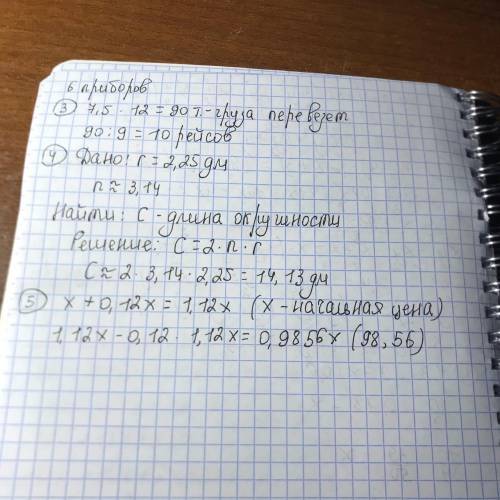 6 приборов
③ 7,5 · 12 = 90 т.- груза перевезет
90 : 9 = 10 рейсов
④ Дано: r = 2,25 дм
п ≈ 3,14
Найти: С - длина окружности
Решение: С = 2 · п · r
С ≈ 2 · 3,14 · 2,25 = 14,13 дм
⑤ х + 0,12х = 1,12х (х - начальная цена)
1,12х - 0,12 · 1,12х = 0,9856х (98,56)